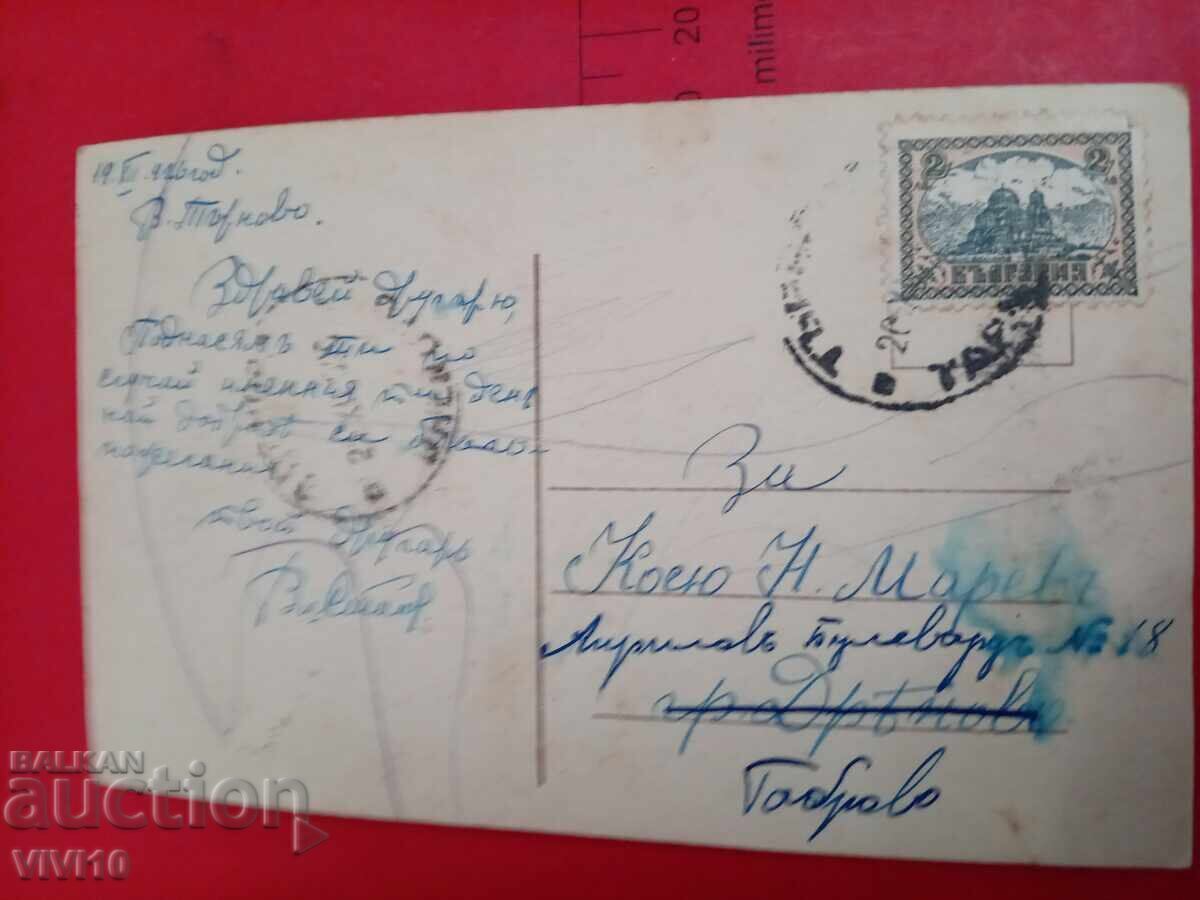 20
milime
19. XII. 926 год.
В. Търново.
Здравей Другарю,
Поднасямъ ти по
случай именния ти день
най добритѣ си
пожелания
твой Другарь
2 2
БЪЛГАРИЯ
ТЪРНОВ
За
Косю Н. Маревъ
Априловъ Булевардъ № 18
гр. Дрѣново
Габрово
BALKAN
auction
VIVI10